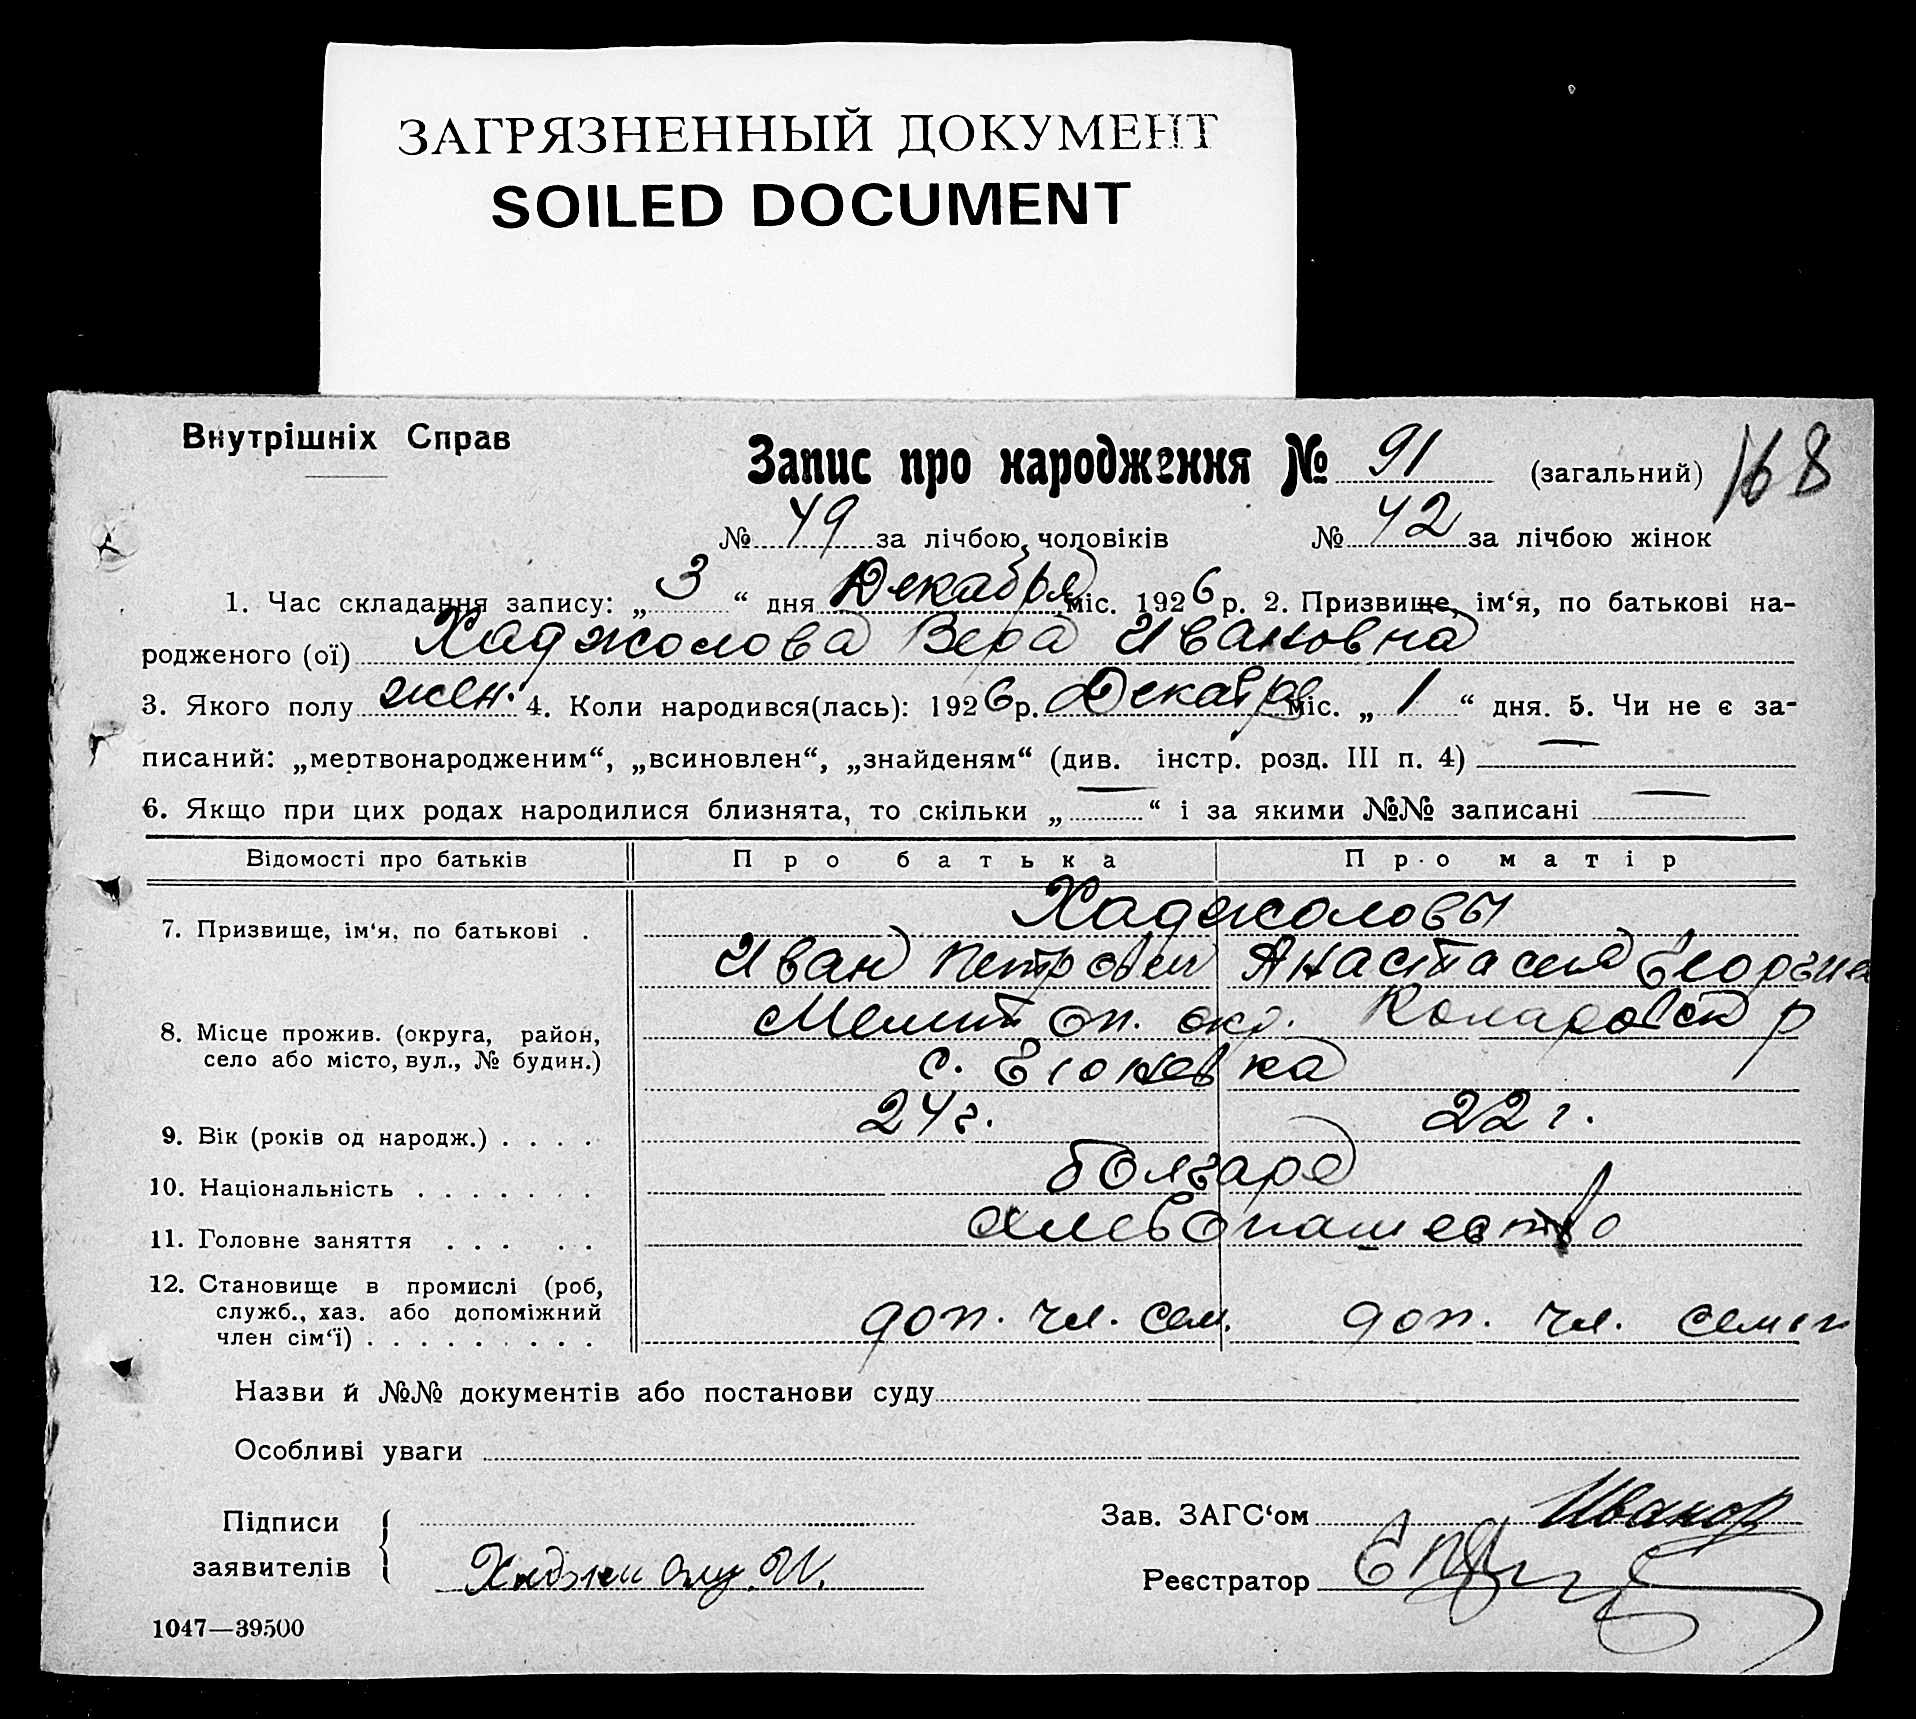 ЗАГРЯЗНЕННЫЙ ДОКУМЕНТ
SOILED DOCUMENT
Внутрішніх Справ
Запис про народження № 91 (загальний) 168
№ 49 за лічбою чоловіків № 42 за лічбою жінок
1. Час складання запису: „ 3 “ дня Декабря міс. 1926 р. 2. Призвище, ім‘я, по батькові на-
родженого (ої) Хаджолова Вера Ивановна
3. Якого полу жен. 4. Коли народився(лась): 1926 р. Декабря міс. „ 1 “ дня. 5. Чи не є за-
писаний: „мертвонародженим“, „всиновлен“, „знайденям“ (див. інстр. розд. III п. 4) —
6. Якщо при цих родах народилися близнята, то скільки „ — “ і за якими №№ записані —
Відомості про батьків Про батька Про матір
7. Призвище, ім‘я, по батькові . Хаджоловы
Иван Петрович Анастасия Георгиев
8. Місце прожив. (округа, район, Мелитоп. окр. Коларовск р
село або місто, вул., № будин.) с.
9. Вік (років од народж.) . . . . 24 г. 22 г.
10. Національність . . . . . . . болгаре
11. Головне заняття . . . . . хлебопашество
12. Становище в промислі (роб,
служб., хаз. або допоміжний
член сім‘ї) . . . . . . . . . доп. чл. сем. доп. чл. семьи
Назви й №№ документів або постанови суду
Особливі уваги
Підписи Зав. ЗАГС‘ом Иванов
заявителів Реєстратор
1047—39500